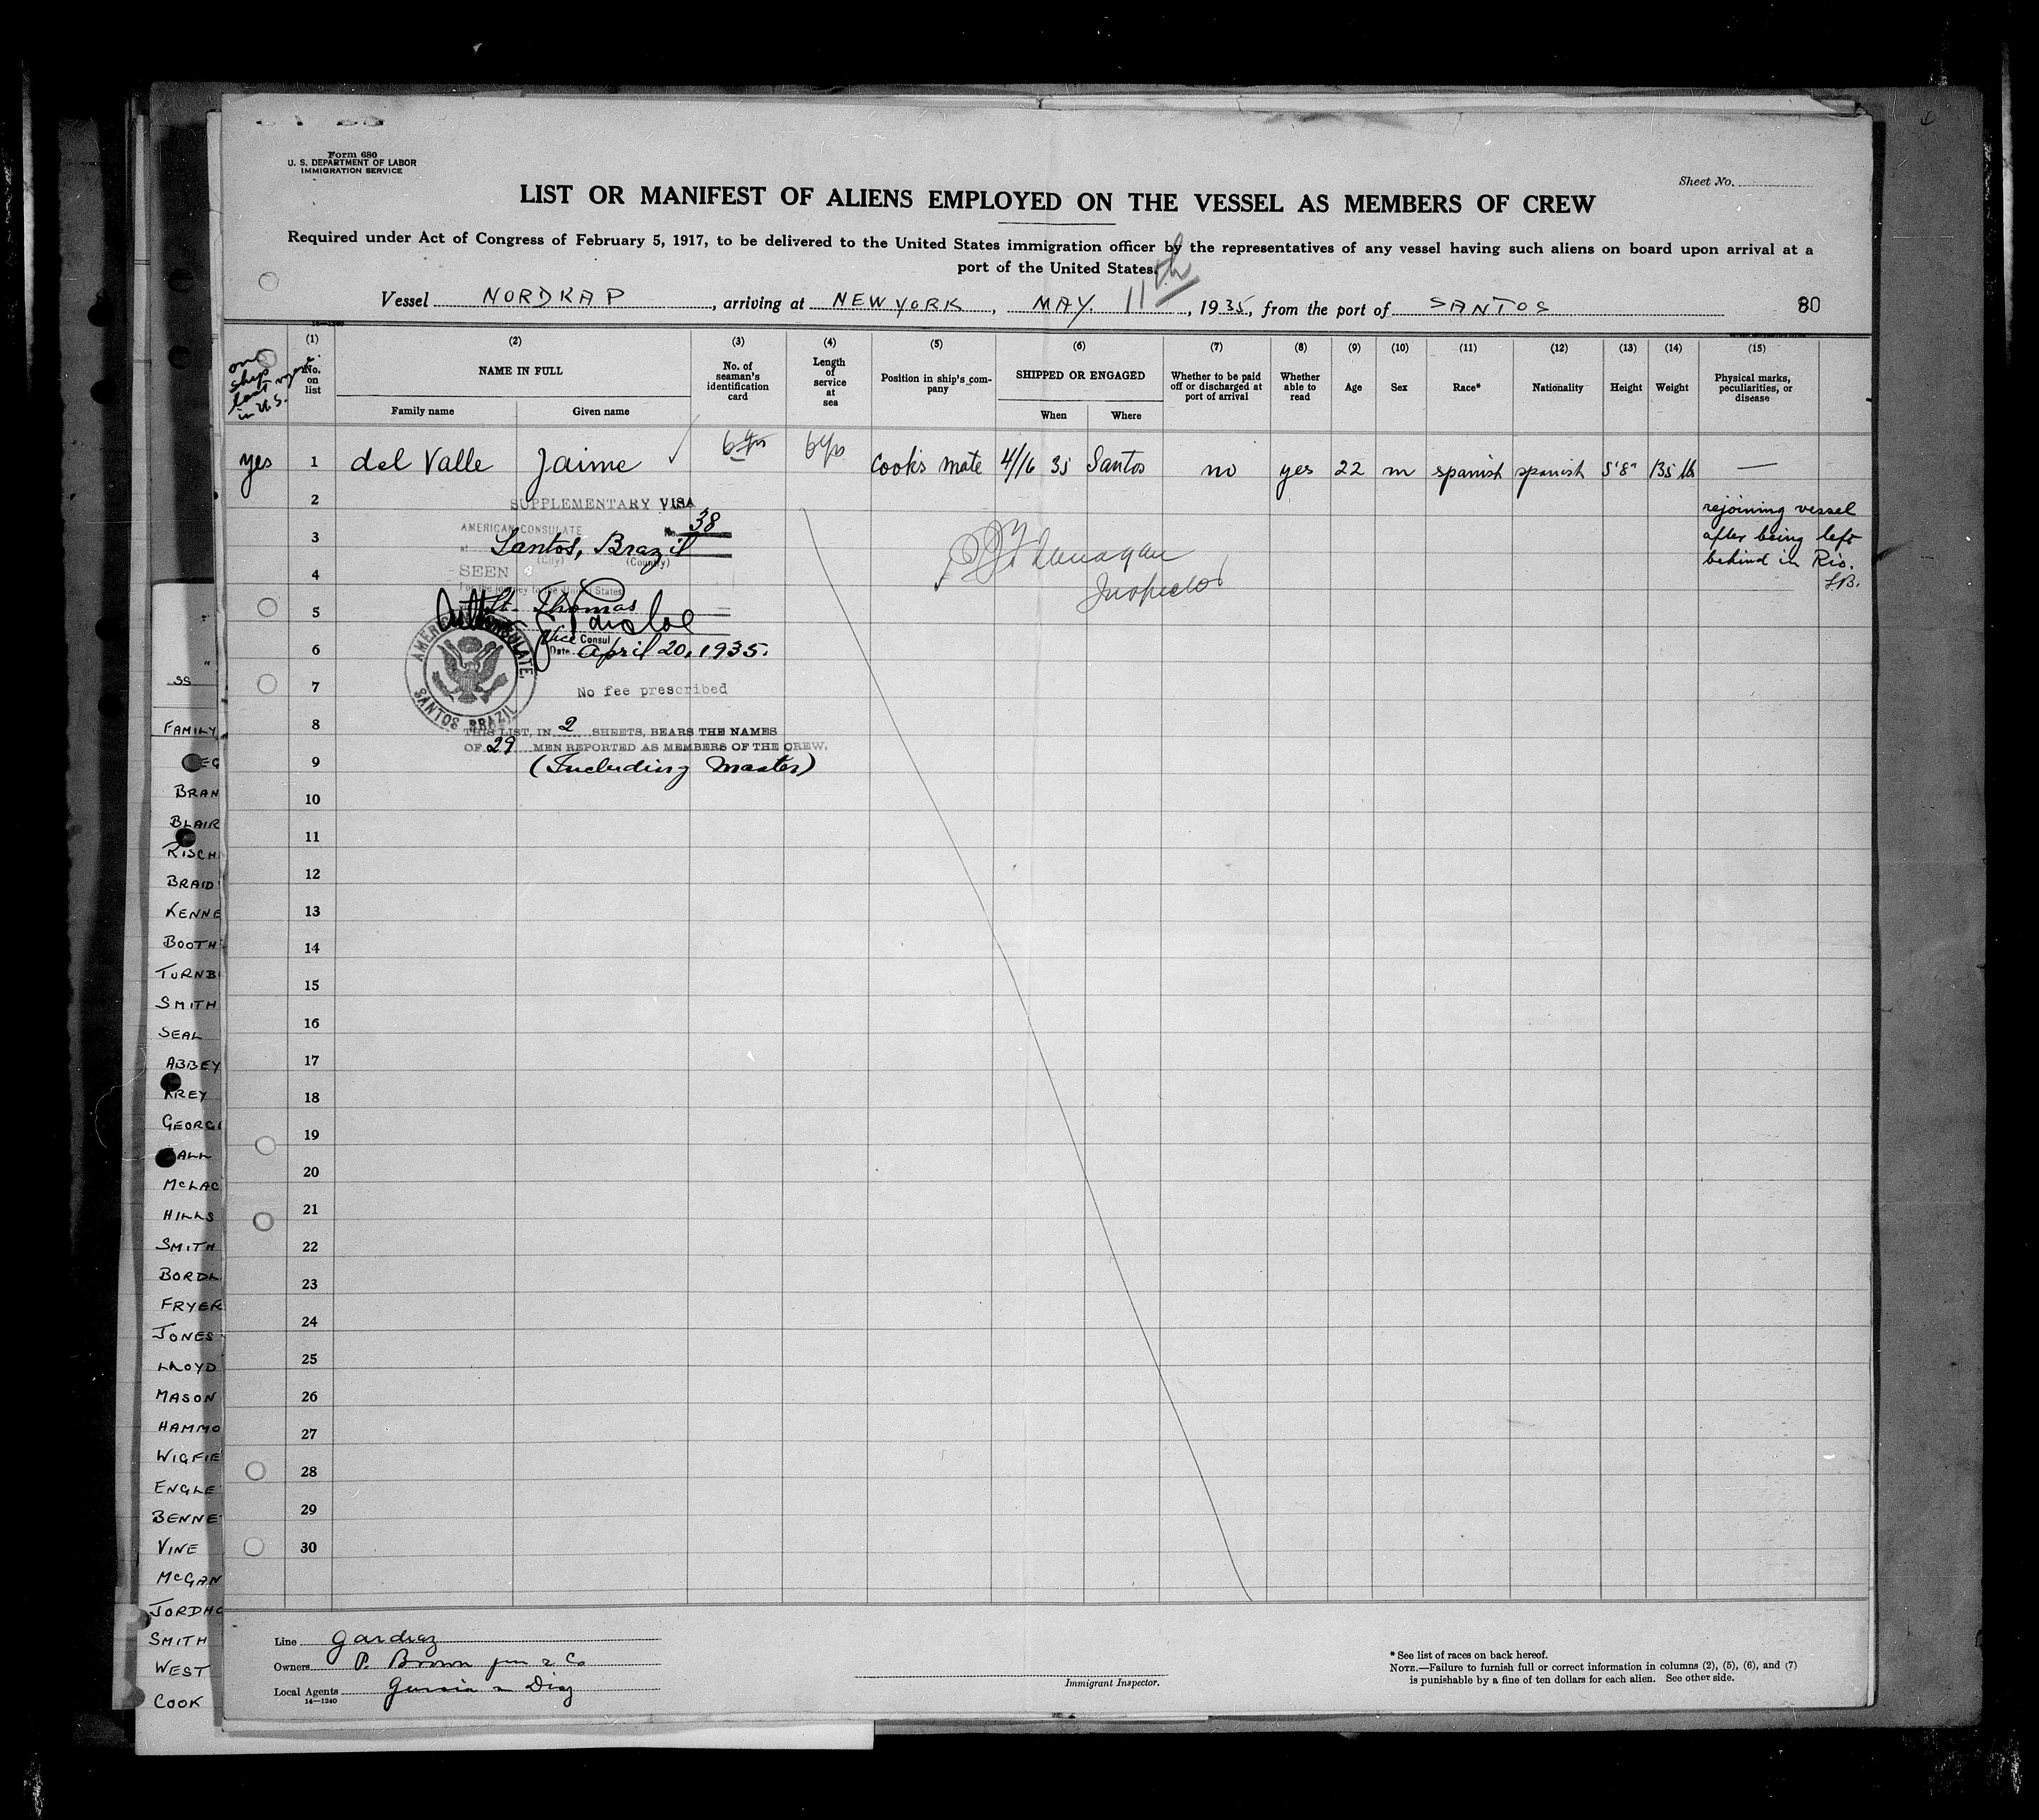 Form 680
U. S. DEPARTMENT OF LABOR
IMMIGRATION SERVICE
Sheet No.
LIST OR MANIFEST OF ALIENS EMPLOYED ON THE VESSEL AS MEMBERS OF CREW
Required under Act of Congress of February 5, 1917, to be delivered to the United States immigration officer by the representatives of any vessel having such aliens on board upon arrival at a
port of the United States.
Vessel NORDKAP, arriving at NEW YORK, MAY. 11th, 1935, from the port of SANTOS 80
on ship last voyage in U.S.
(1) No. on list
(2) NAME IN FULL
Family name Given name
(3) No. of seaman's identification card
(4) Length of service at sea
(5) Position in ship's company
(6) SHIPPED OR ENGAGED
When Where
(7) Whether to be paid off or discharged at port of arrival
(8) Whether able to read
(9) Age
(10) Sex
(11) Race*
(12) Nationality
(13) Height
(14) Weight
(15) Physical marks, peculiarities, or disease
yes 1 del Valle Jaime 6 yrs 6 yrs Cook's mate 4/16 35 Santos no yes 22 m spanish spanish 5'8" 135 lb —
rejoining vessel
after being left
behind in Rio.
2
SUPPLEMENTARY VISA
AMERICAN CONSULATE No. 38
3
at Santos, Brazil
(City) (Country)
SEEN
4
For the journey to the United States
St. Thomas
5
Vice Consul
6
Date April 20, 1935.
AMERICAN CONSULATE
SANTOS BRAZIL
7
No fee prescribed
8
THIS LIST, IN 2 SHEETS, BEARS THE NAMES
OF 29 MEN REPORTED AS MEMBERS OF THE CREW.
9
(Including Master)
Flanagan
Inspector
10
11
12
13
14
15
16
17
18
19
20
21
22
23
24
25
26
27
28
29
30
Line Gardiaz
Owners P. Brown jun & Co
Local Agents Garcia & Diaz
14—1240
Immigrant Inspector.
* See list of races on back hereof.
NOTE.—Failure to furnish full or correct information in columns (2), (5), (6), and (7)
is punishable by a fine of ten dollars for each alien. See other side.
SS
FAMILY
BRAN
BLAIR
RISCH
BRAID
KENNE
BOOTH
TURNB
SMITH
SEAL
ABBEY
KREY
GEORG
ALL
McLAC
HILLS
SMITH
BORDL
FRYER
JONES
LLOYD
MASON
HAMMO
WIGFIE
ENGLE
BENNE
VINE
McGAN
JORDHO
SMITH
WEST
COOK